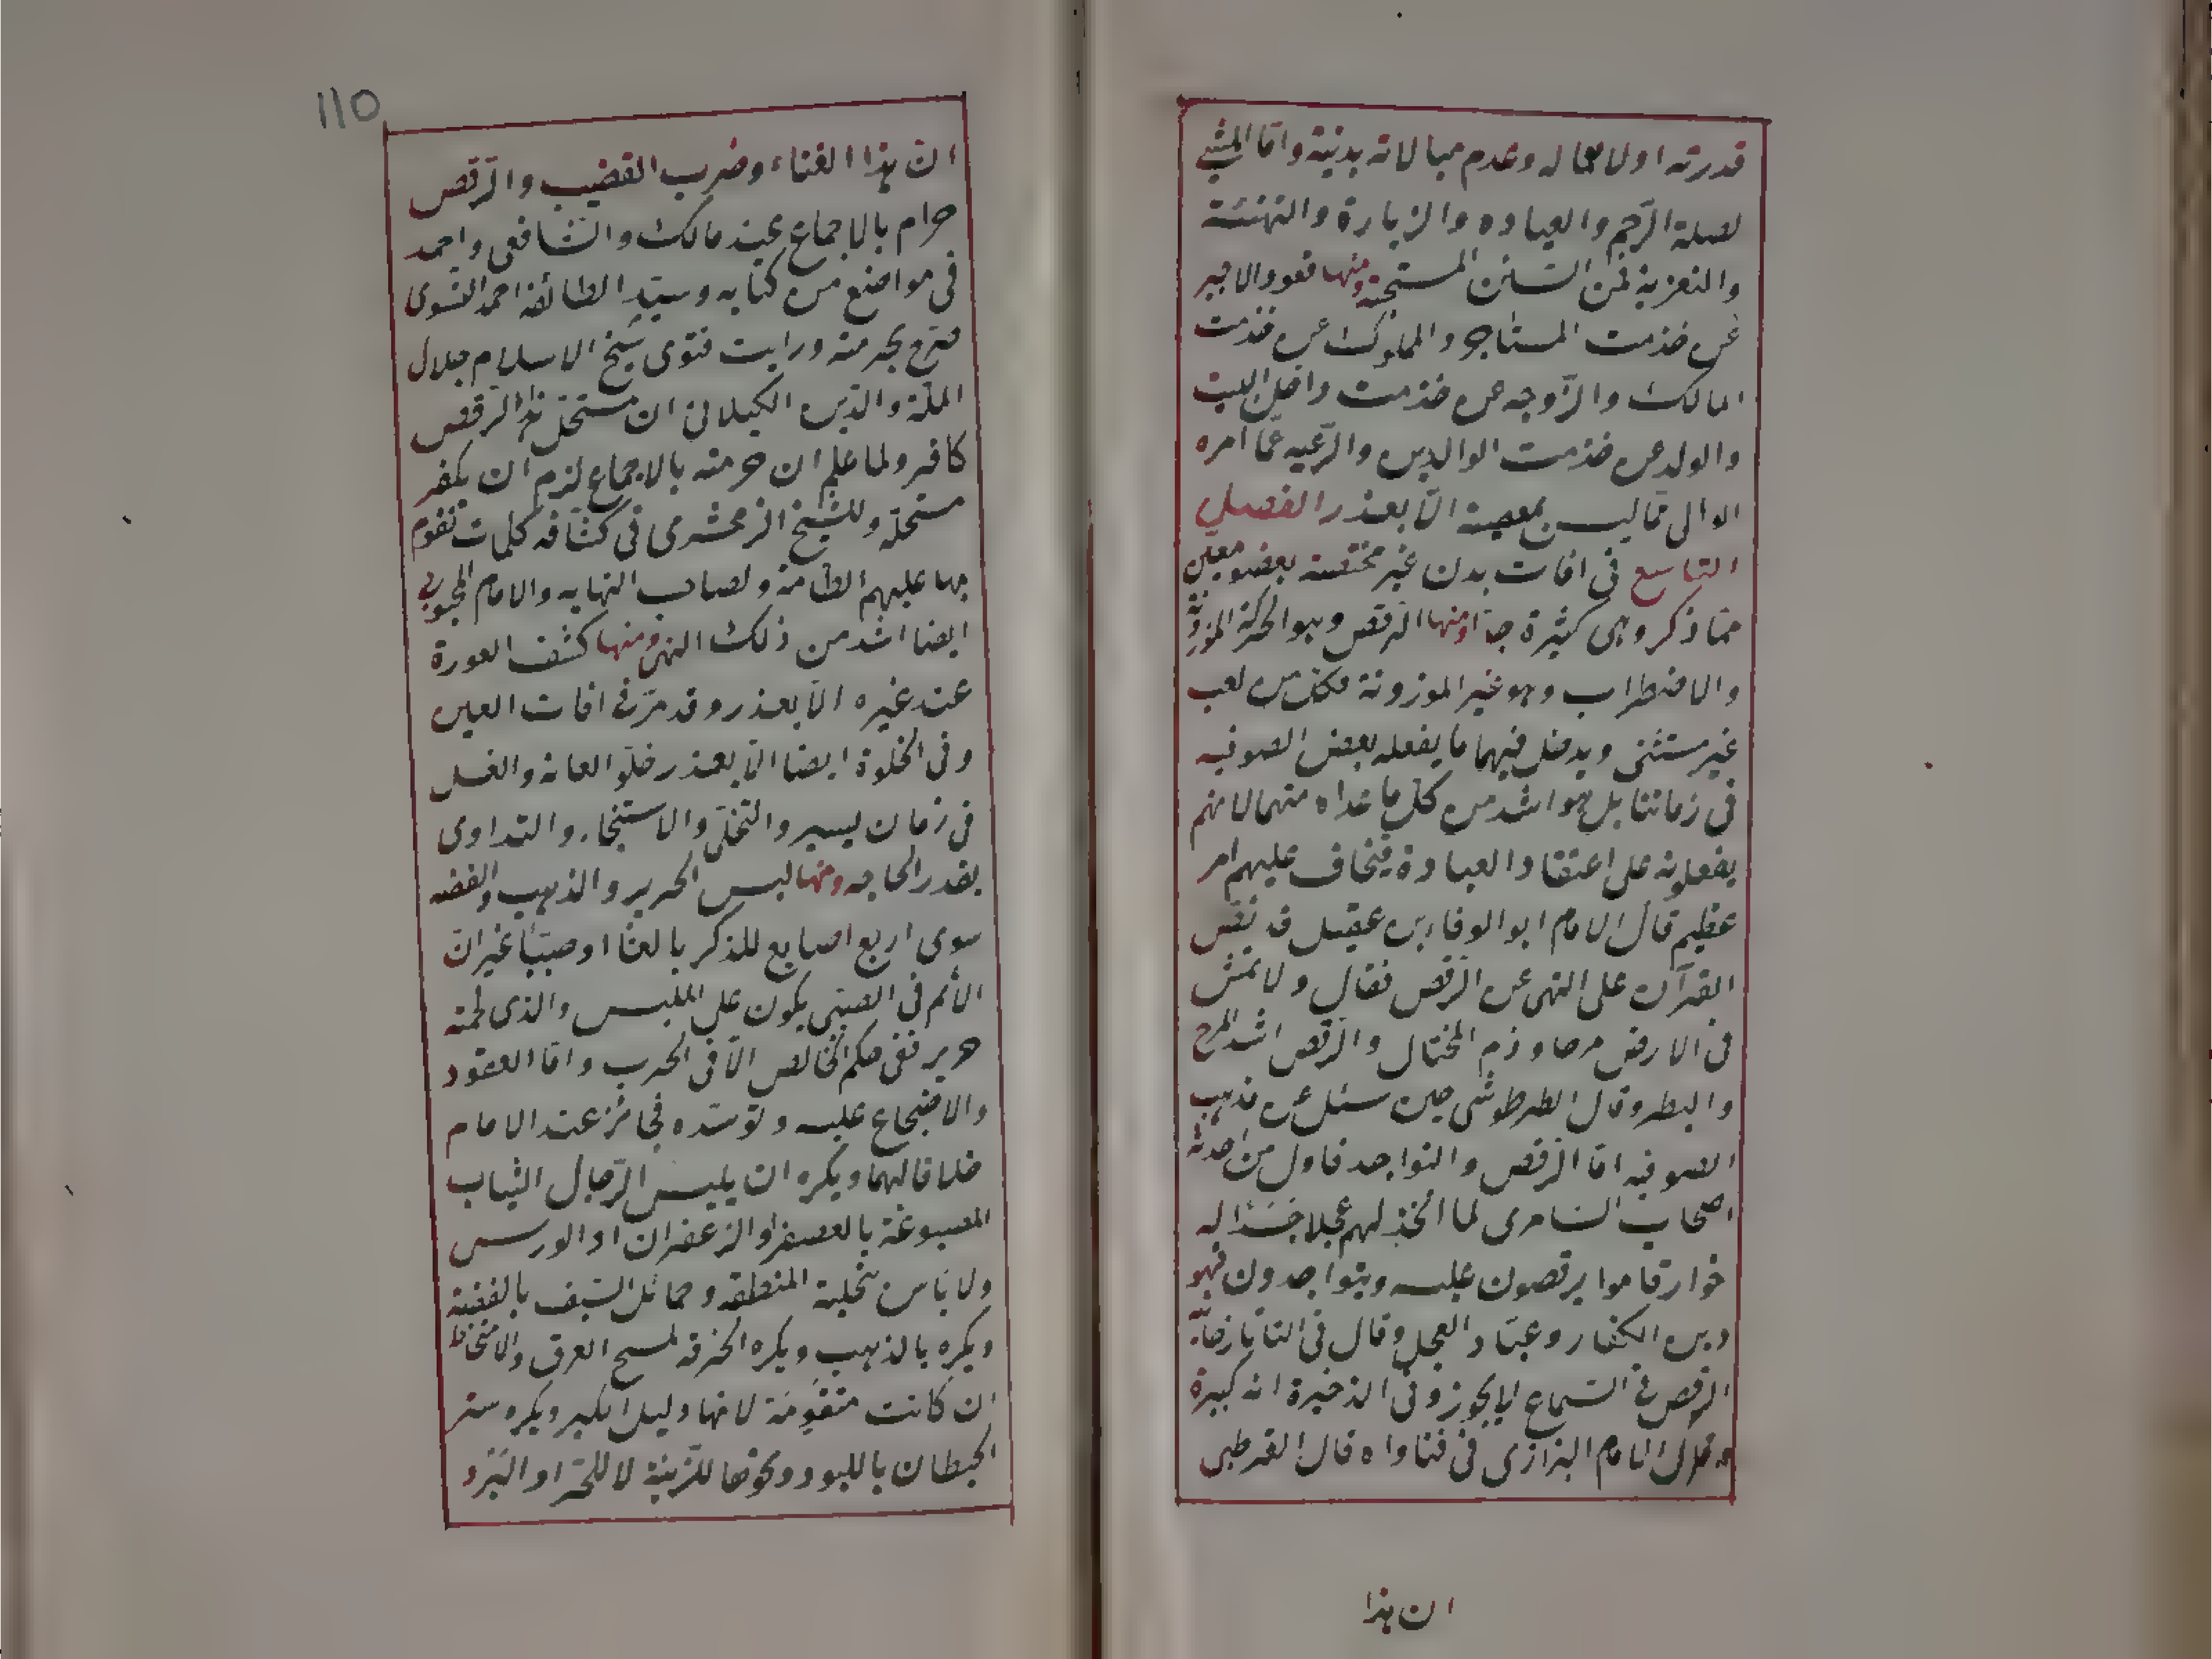 قدرته اولا لماله وعدم مبالاته بدنيه واما المشي
لصلة الرّحم والعياده والزيارة والتهنئة
والتعزية فمن السنن المستحبة ومنها قعود الاجير
عن خذمت المستاجر والمملوك عن خذمت
المالك والزّوجه عن خذمت داخل البيت
والولد عن خذمت الوالدين والرّعيه عمّا امره
الوالى ممّا ليس بمعصية الّا بعذر الفصل
التاسع فى افات بدن غير مختصة بعضو معيّن
ممّا ذكر وهى كثيرة جدّا ومنها الرّقص وهو الحركة الموزونة
والاضطراب وهو غير الموزونة فكل من لعب
غير مستثنى ويدخل فيهما ما يفعله بعض الصوفيه
فى زماننا بل هو اشد من كلّ ما عداه منهما لانهم
يفعلونه على اعتقاد العبادة فيخاف عليهم امر
عظيم قال الامام ابو الوفاء بن عقيل قد نصّ
القرآن على النهى عن الرّقص فقال ولا تمش
فى الارض مرحا وذم المختال والرّقص اشد المرح
والبطر وقال الطرطوشى حين سئل عن مذهب
الصوفيه امّا الرّقص والتواجد فاول من احدثه
اصحاب السامرى لما اتخذ لهم عجلا جسدا له
خوار قاموا يرقصون عليه ويتواجدون فهو
دين الكفار وعبّاد العجل وقال فى التاتارخانيّه
الرّقص فى السماع لا يجوز وفى الذخيرة انه كبيرة
وقال الامام البزازى فى فتاواه قال القرطبى
ان هذا
110
انّ هذا الغناء وضرب القضيب والرّقص
حرام بالاجماع عند مالك والشافعى واحمد
فى مواضع من كتابه وسيّد الطائفة احمد النسوى
صرّح بحرمته ورايت فتوى شيخ الاسلام جلال
الملّة والدّين الكيلانى ان مستحلّ هذا الرّقص
كافر ولما علم ان حرمته بالاجماع لزم ان يكفر
مستحلّه وللشيخ الزمخشرى فى كشّافه كلمات تقوم
بها عليهم الطّامة ولصاحب النهايه والامام المحبوبى
ايضا اشد من ذلك النهى ومنها كشف العورة
عند غيره الّا بعذر وقد مرّ فى افات العين
وفى الخلوة ايضا الّا بعذر حلق العانه والغسل
فى زمان يسير والتخلّى والاستنجاء والتداوى
بقدر الحاجه ومنها لبس الحرير والذهب والفضه
سوى اربع اصابع للذكر بالغا او صبيّا غير انّ
الاثم فى الصبىّ يكون على الملبس والذى لحمته
حرير ففى حكم الخالص الّا فى الحرب وامّا العقود
والاضطجاع عليه وتوسّده فجائز عند الامام
خلافا لهما ويكره ان يلبس الرّجال الثياب
المصبوغة بالعصفر او الزعفران او الورس
ولا باس بتحلية المنطقه وحمائل السّيف بالفضة
ويكره بالذهب ويكره الخرقه لمسح العرق والامتخاط
ان كانت متقوّمة لانها دليل الكبر ويكره ستر
الحيطان باللبود ونحوها للزّينة لا للحرّ او البرد